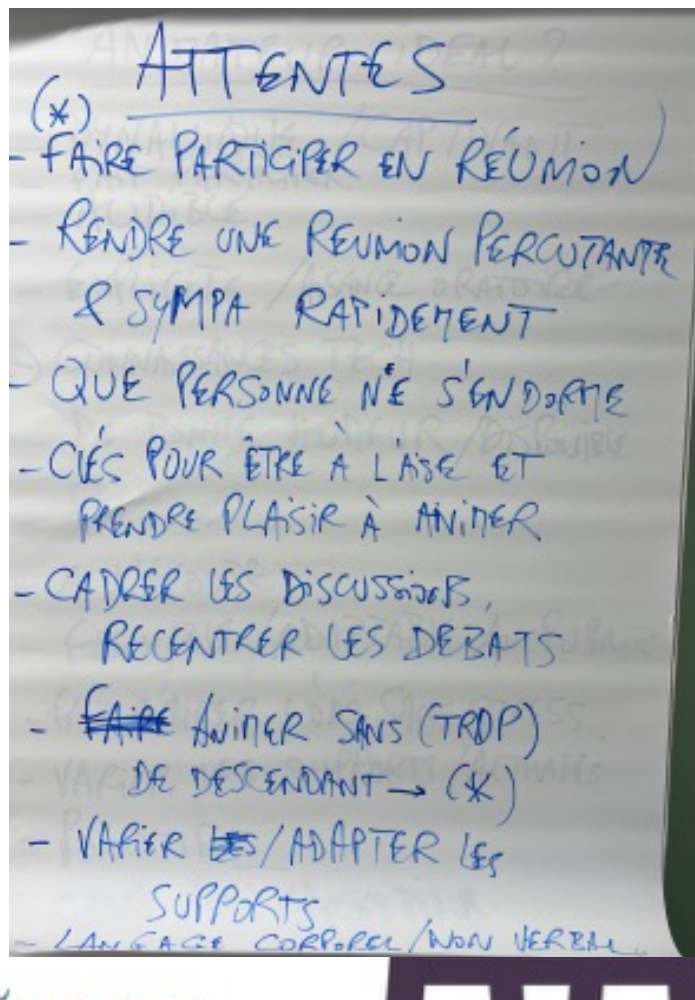 ATTENTES
(*)
- FAIRE PARTICIPER EN RÉUNION
- RENDRE UNE REUNION PERCUTANTE
& SYMPA RAPIDEMENT
- QUE PERSONNE NE S'ENDORME
- CLÉS POUR ÊTRE À L'AISE ET
PRENDRE PLAISIR À ANIMER
- CADRER LES DISCUSSIONS,
RECENTRER LES DEBATS
- FAIRE ANIMER SANS (TROP)
DE DESCENDANT → (*)
- VARIER LES/ADAPTER LES
SUPPORTS
- LANGAGE CORPOREL/NON VERBAL